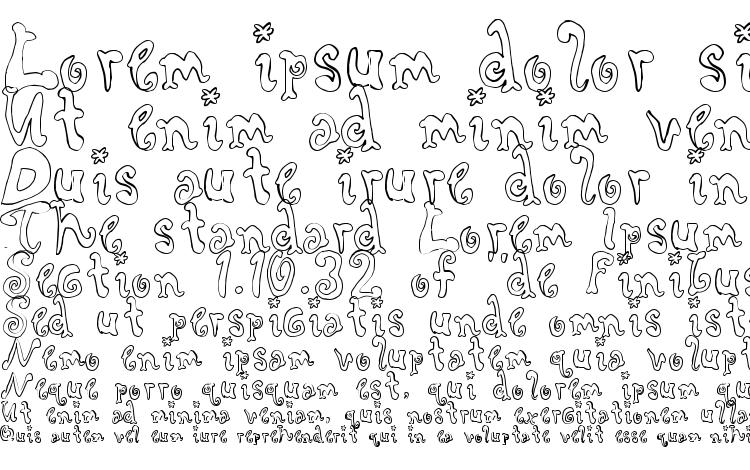 Lorem ipsum dolor si
Ut enim ad minim ven
Duis aute irure dolor in
The standard Lorem Ipsum
Section 1.10.32 of "de Finibus
Sed ut perspiciatis unde omnis ist
Nemo enim ipsam voluptatem quia volup
Neque porro quisquam est, qui dolorem ipsum qu
Ut enim ad minima veniam, quis nostrum exercitationem ulla
Quis autem vel eum iure reprehenderit qui in ea voluptate velit esse quam nihi